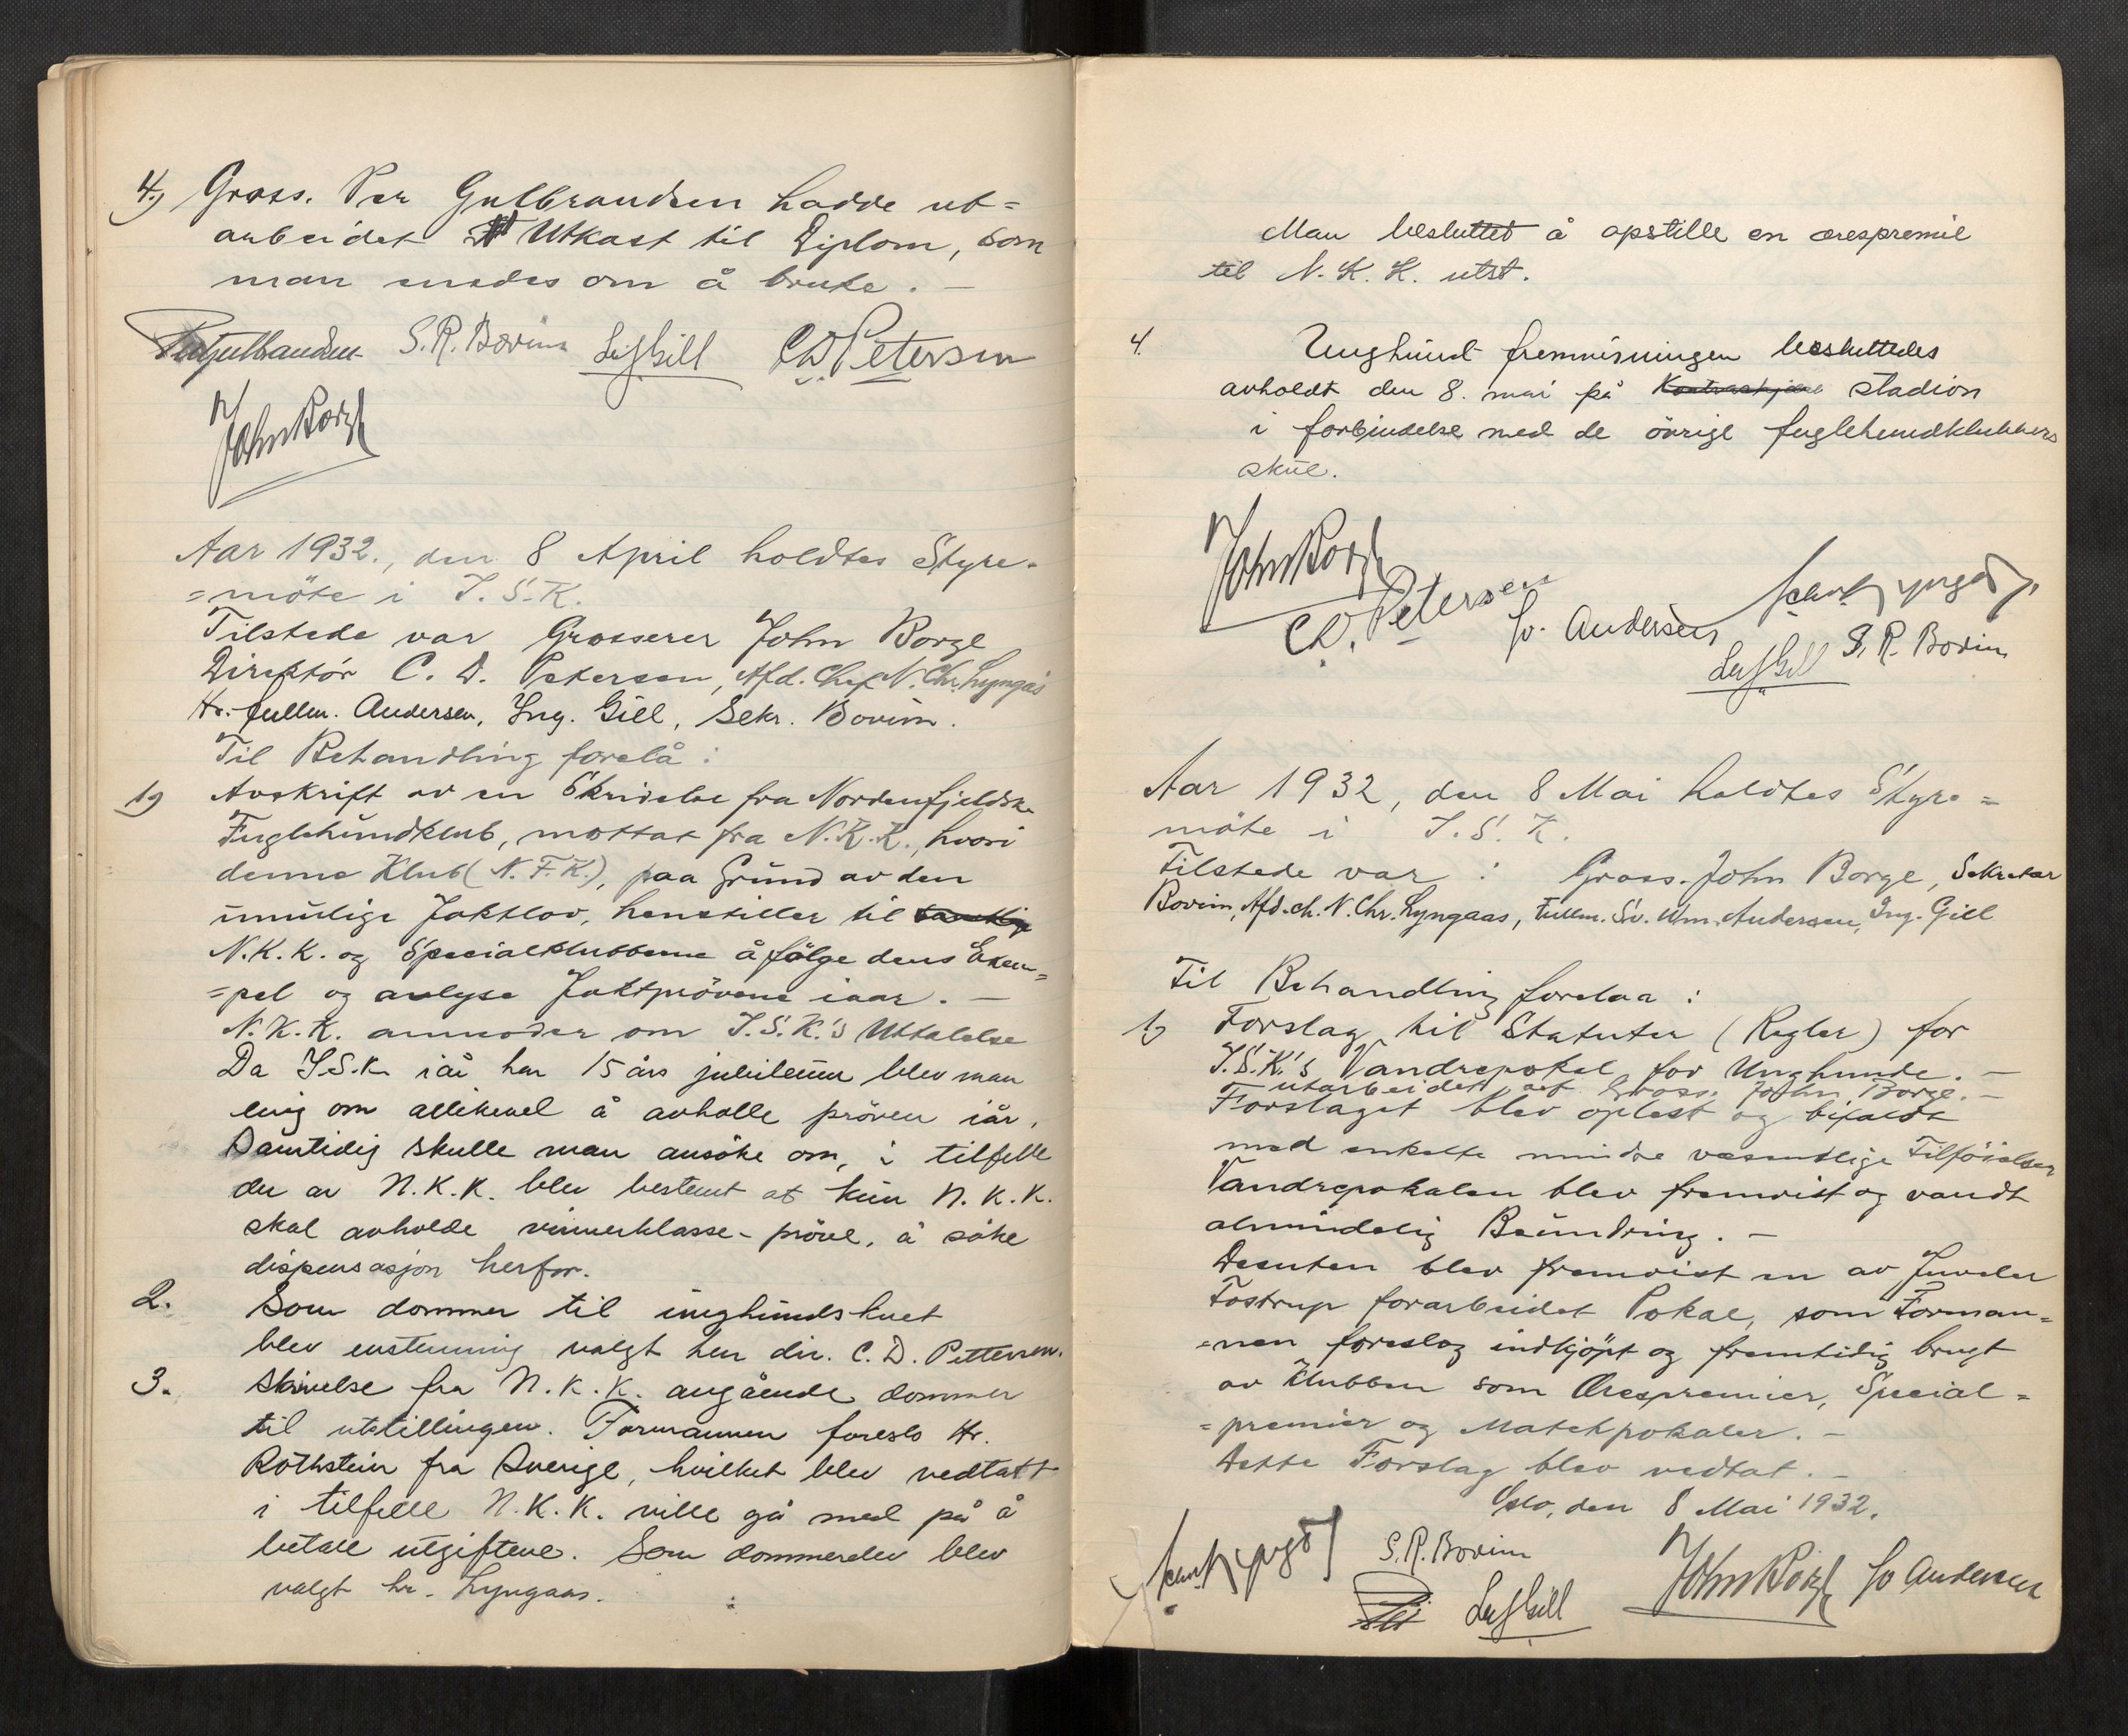 4.) Gross. Per Gulbrandsen hadde ut=
arbeidet et Utkast til Diplom, som
man enedes om å bruke. —
PerGulbrandsen S.R. Bovim Leif Gill C.D. Petersen
John Borge
Aar 1932., den 8 April holdtes Styre-
=möte i I.S.K.
Tilstede var Grosserer John Borge
Direktör C. D. Petersen, Afd. Chef N. Chr. Lyngås
Hr. fullm. Andersen, Ing. Gill, Sekr. Bovim.
Til Behandling forelå :
1) Avskrift av en Skrivelse fra Nordenfjeldske
Fuglehundklub, mottat fra N.K.K., hvori
denne Klub (N.F.K.), paa Grund av den
umulige Jaktlov, henstiller til samtlige
N.K.K. og Specialklubbene å följe dens Exem-
=pel og avlyse Jaktprövene iaar. —
N.K.K. anmoder om I.S.K.'s Uttalelse
Da I.S.K. iår har 15 års jubileum blev man
enig om allikevel å avholde pröven iår,
Samtidig skulle man ansöke om, i tilfelle
der av N.K.K. blev bestemt at kun N.K.K.
skal avholde vinnerklasse-pröve, å söke
dispensasjon herfor.
2. Som dommer til unghundskuet
blev enstemmig valgt herr dir. C. D. Pettersen.
3. Skrivelse fra N.K.K. angående dommer
til utstillingen. Formannen foreslo Hr.
Rothstein fra Sverige, hvilket blev vedtatt
i tilfelle N.K.K. ville gå med på å
betale utgiftene. Som dommerelev blev
valgt hr. Lyngaas.
Man besluttet å opstille en ærespremie
til N.K.K. utst.
4. Unghund fremvisningen besluttedes
avholdt den 8. mai på Kontraskjæret stadion
i forbindelse med de övrige fuglehundklubbers
skue.
John Borge
C.D. Petersen Sv. Andersen
Leif Gill S.R. Bovim
Aar 1932, den 8 Mai holdtes Styre=
möte i I.S.K.
Tilstede var : Gross. John Borge, Sekretær
Bovim, Afd.ch. N. Chr. Lyngaas, fullm. Sv. Wm. Andersen, Ing. Gill
Til Behandling forelaa :
1) Forslag til Statuter (Regler) for
I.S.K.'s Vandrepokal for Unghunde. —
utarbeidet af Gross. John Borge. —
Forslaget blev oplest og bifaldt
med enkelte mindre væsentlige Tilföielser
Vandrepokalen blev fremvist og vandt
almindelig Beundring. —
Desuten blev fremvist en av Juveler
Tostrup forarbeidet Pokal, som Forman=
=nen foreslog indkjöpt og fremtidig brugt
av Klubben som Ærespremier, Special=
=premier og Matchpokaler. —
Dette Forslag blev vedtat. —
Oslo, den 8 Mai 1932.
S.R. Bovim
Leif Gill John Borge Sv Andersen